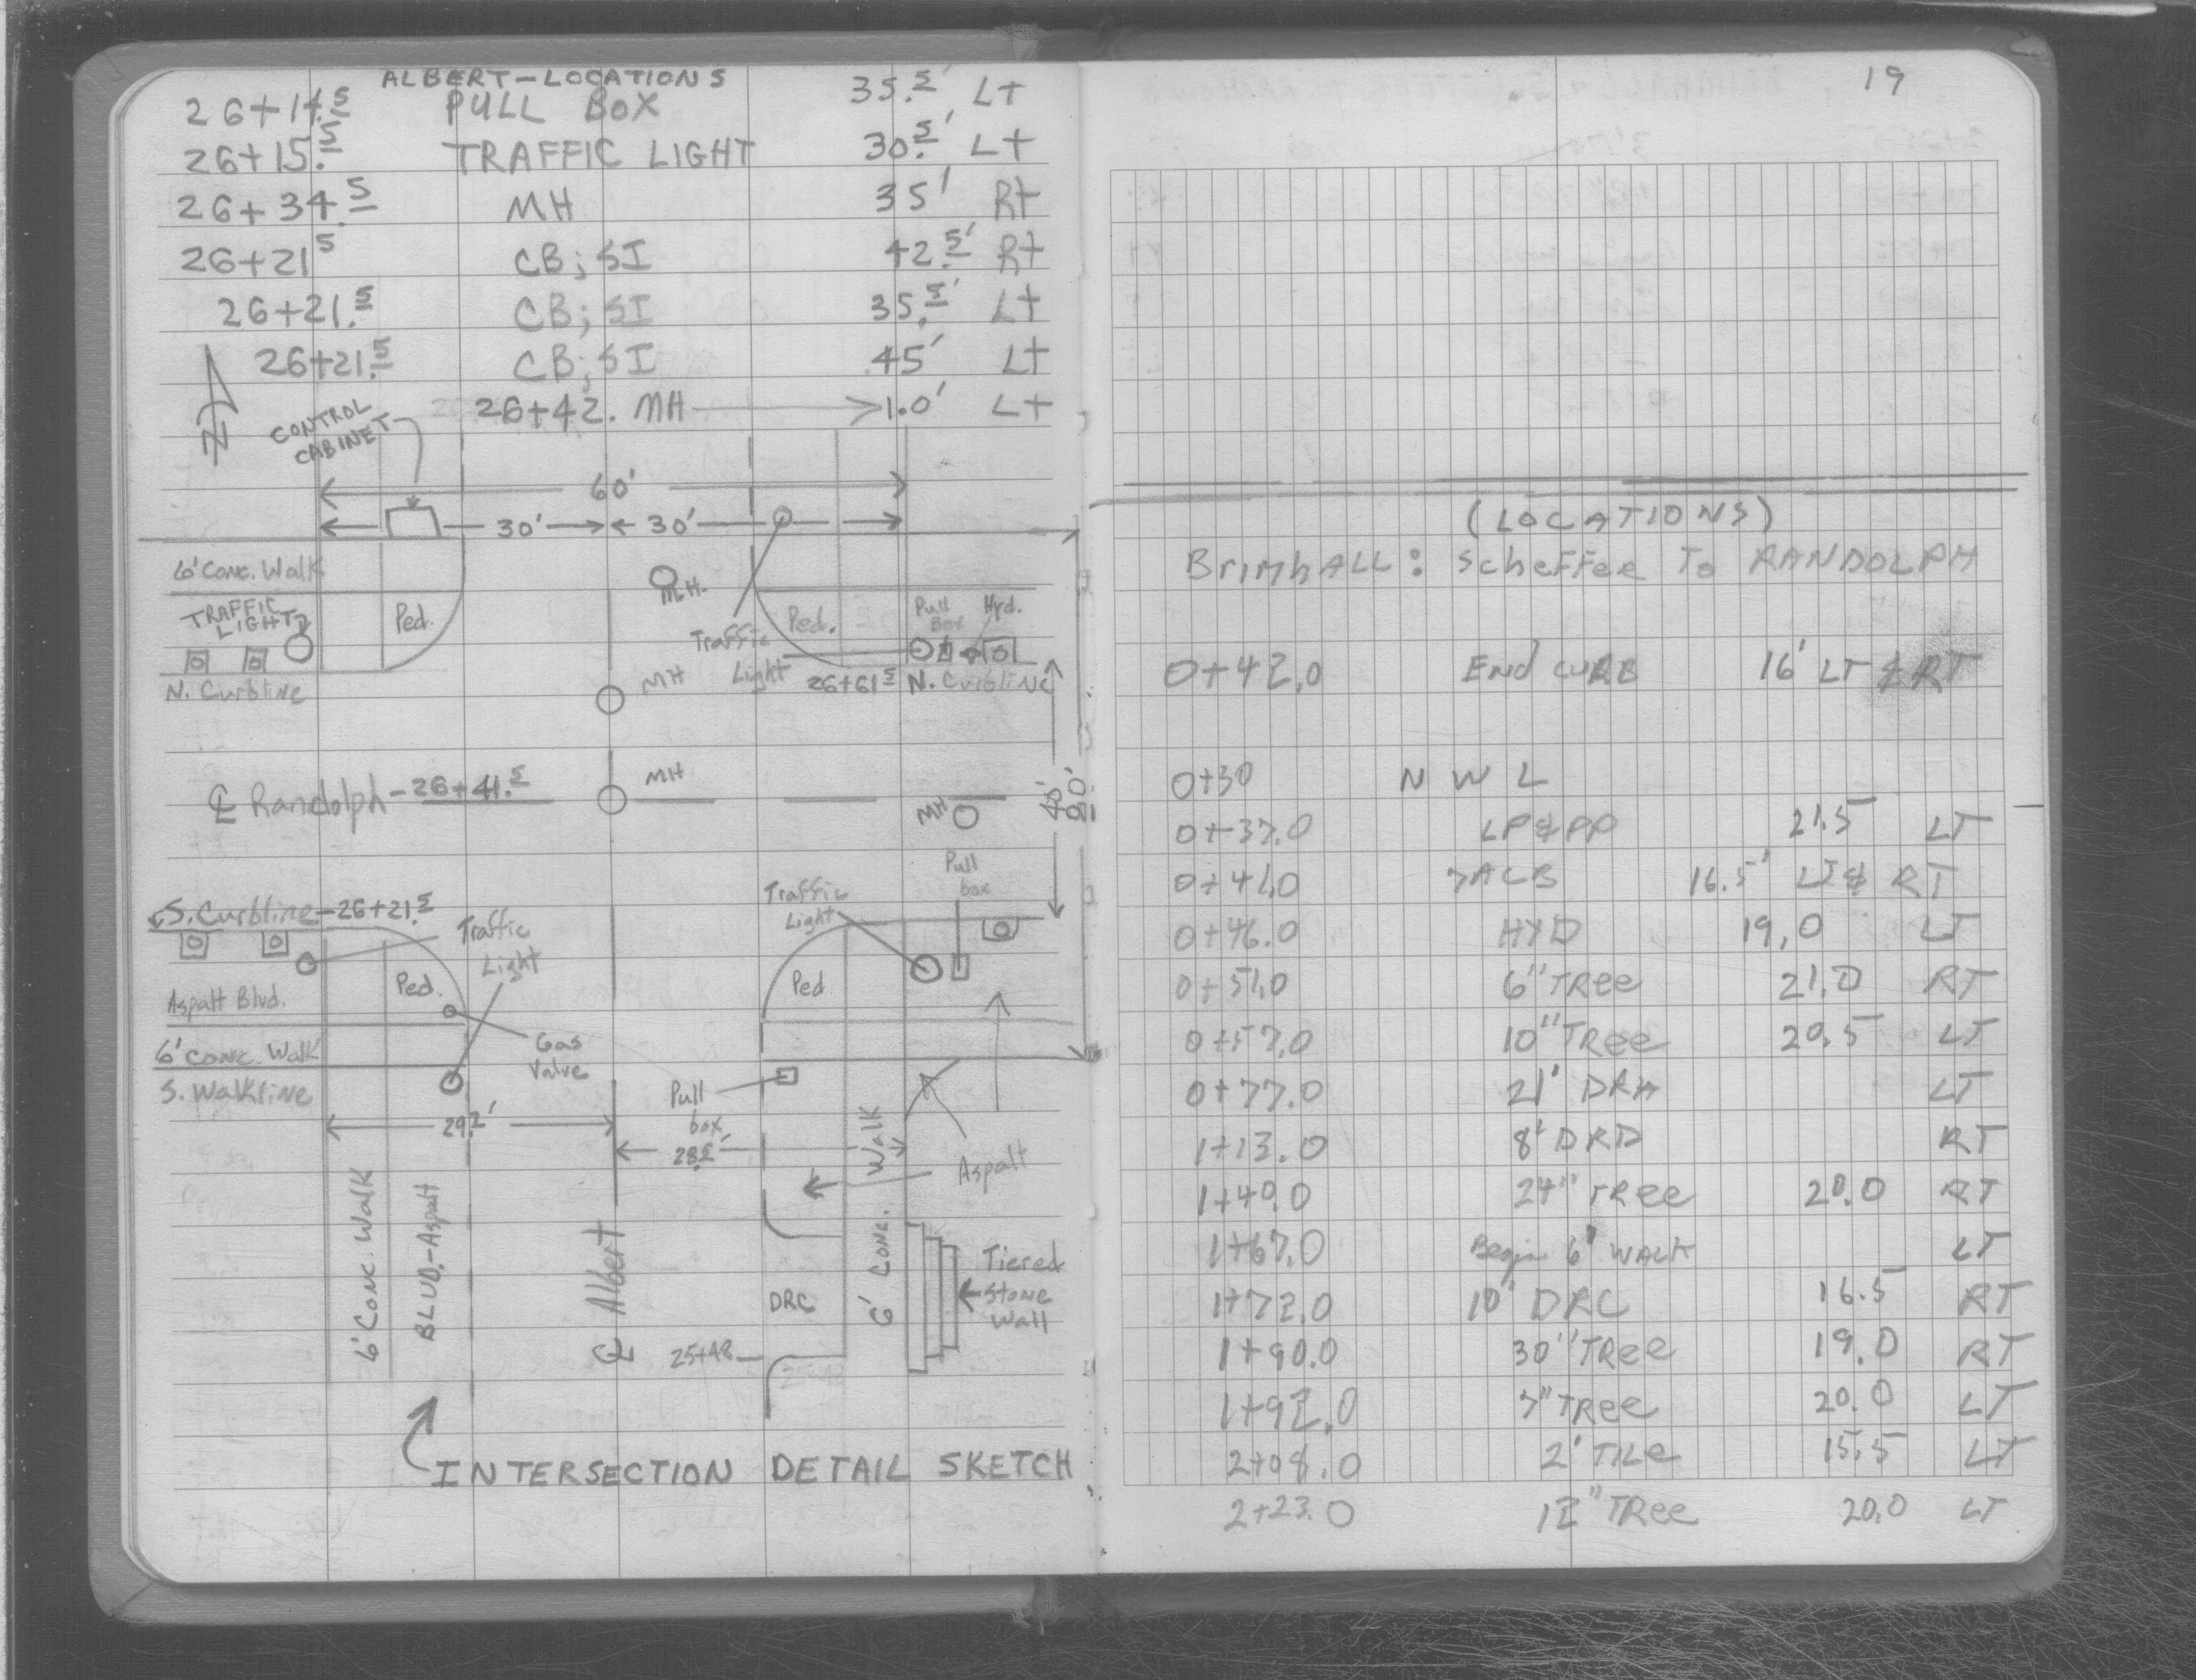 ALBERT-LOCATIONS
26+14.5 PULL BOX 35.5' Lt
26+15.5 TRAFFIC LIGHT 30.5' Lt
26+34.5 MH 35' Rt
26+21 5 CB; SI 42.5' Rt
26+21.5 CB; SI 35.5' Lt
26+21.5 CB; SI 45' Lt
26+42. MH 1.0' Lt
N
CONTROL
CABINET
60'
30' 30'
6' Conc. Walk
MH.
TRAFFIC
LIGHT
Ped.
Ped.
Pull
Box
Hyd.
Traffic
Light
26+61 5 N. Curbline
N. Curbline
MH
℄ Randolph - 26+41.5
MH
MH
40'
80'
S. Curbline - 26+21.5
Traffic
Light
Traffic
Light
Pull
box
Aspalt Blvd.
Ped.
Ped
6' conc. Walk
Gas
Valve
S. Walkline
Pull
box
28.5'
Aspalt
6' Conc. Walk
BLUD.-Aspalt
℄ Albert
6' Conc. Walk
DRC
Tiered
Stone
Wall
25+48
INTERSECTION DETAIL SKETCH
19
(LOCATIONS)
BrimhALL: ScheFFer To RANDOLPH
0+42.0 End CURB 16' LT & RT
0+30 N W L
0+37.0 LP & PP 21.5 LT
0+41.0 >ACB 16.5' LT & RT
0+46.0 HYD 19.0 LT
0+51.0 6" TRee 21.0 RT
0+57.0 10" TRee 20.5 LT
0+77.0 21' DRA LT
1+13.0 8' DRD RT
1+40.0 24" TRee 20.0 RT
1+67.0 Begin 6' WALK LT
1+72.0 10' DRC 16.5 RT
1+90.0 30" TRee 19.0 RT
1+92.0 7" TRee 20.0 LT
2+08.0 2' TILe 15.5 LT
2+23.0 12" TRee 20.0 LT